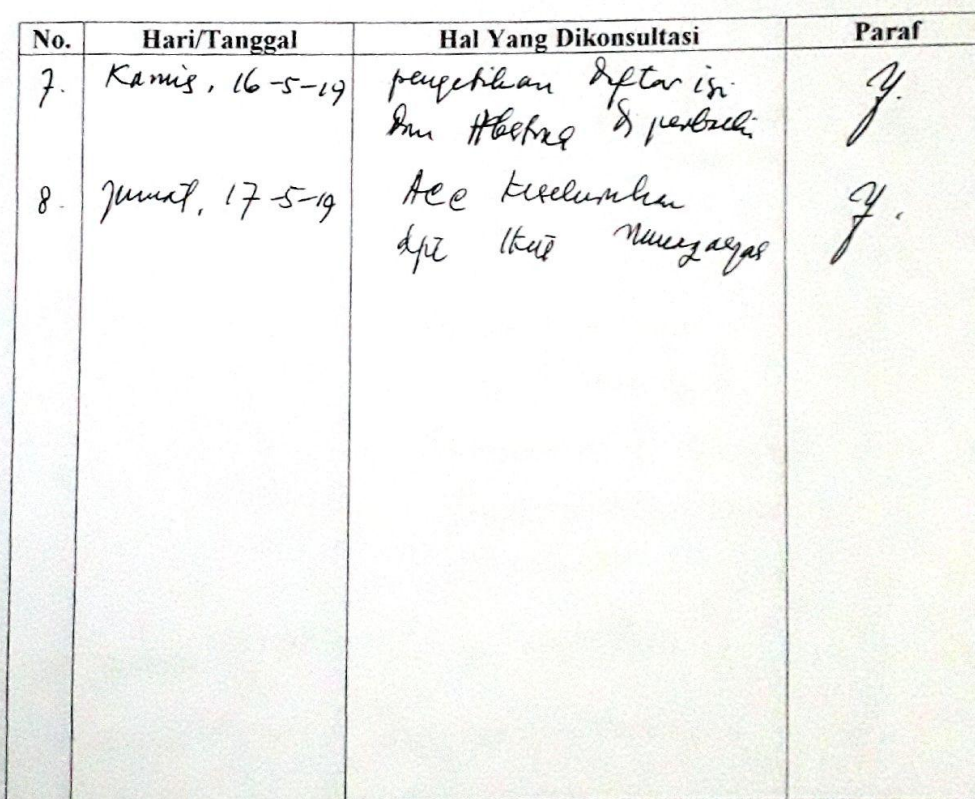 No. Hari/Tanggal Hal Yang Dikonsultasi Paraf
7. Kamis, 16-5-19 pengetikan Daftar isi
dan Abstrak di perbaiki
8. Jumat, 17-5-19 Acc keseluruhan
dpt ikut